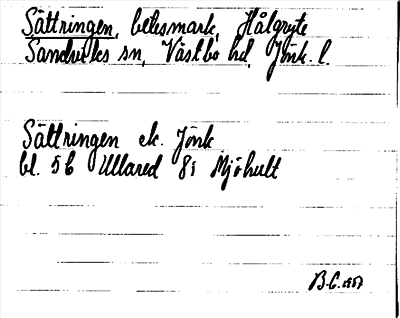 Sättringen, betesmark, Hålgryte
Sandviks sn, Västbo hd, Jönk. l.
Sättringen ek. Jönk
bl. 5b Ullared 8i Mjöhult
B.C. 1957